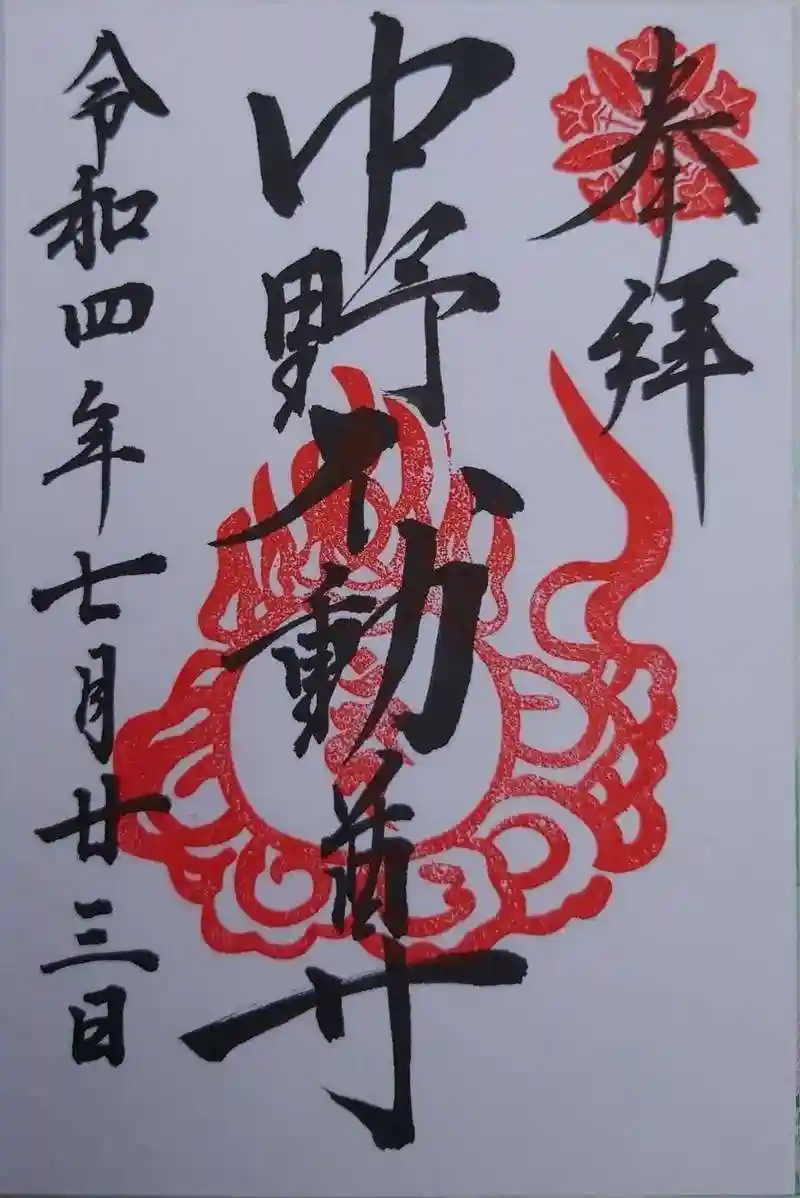 奉拝
中野不動尊
令和四年七月廿三日